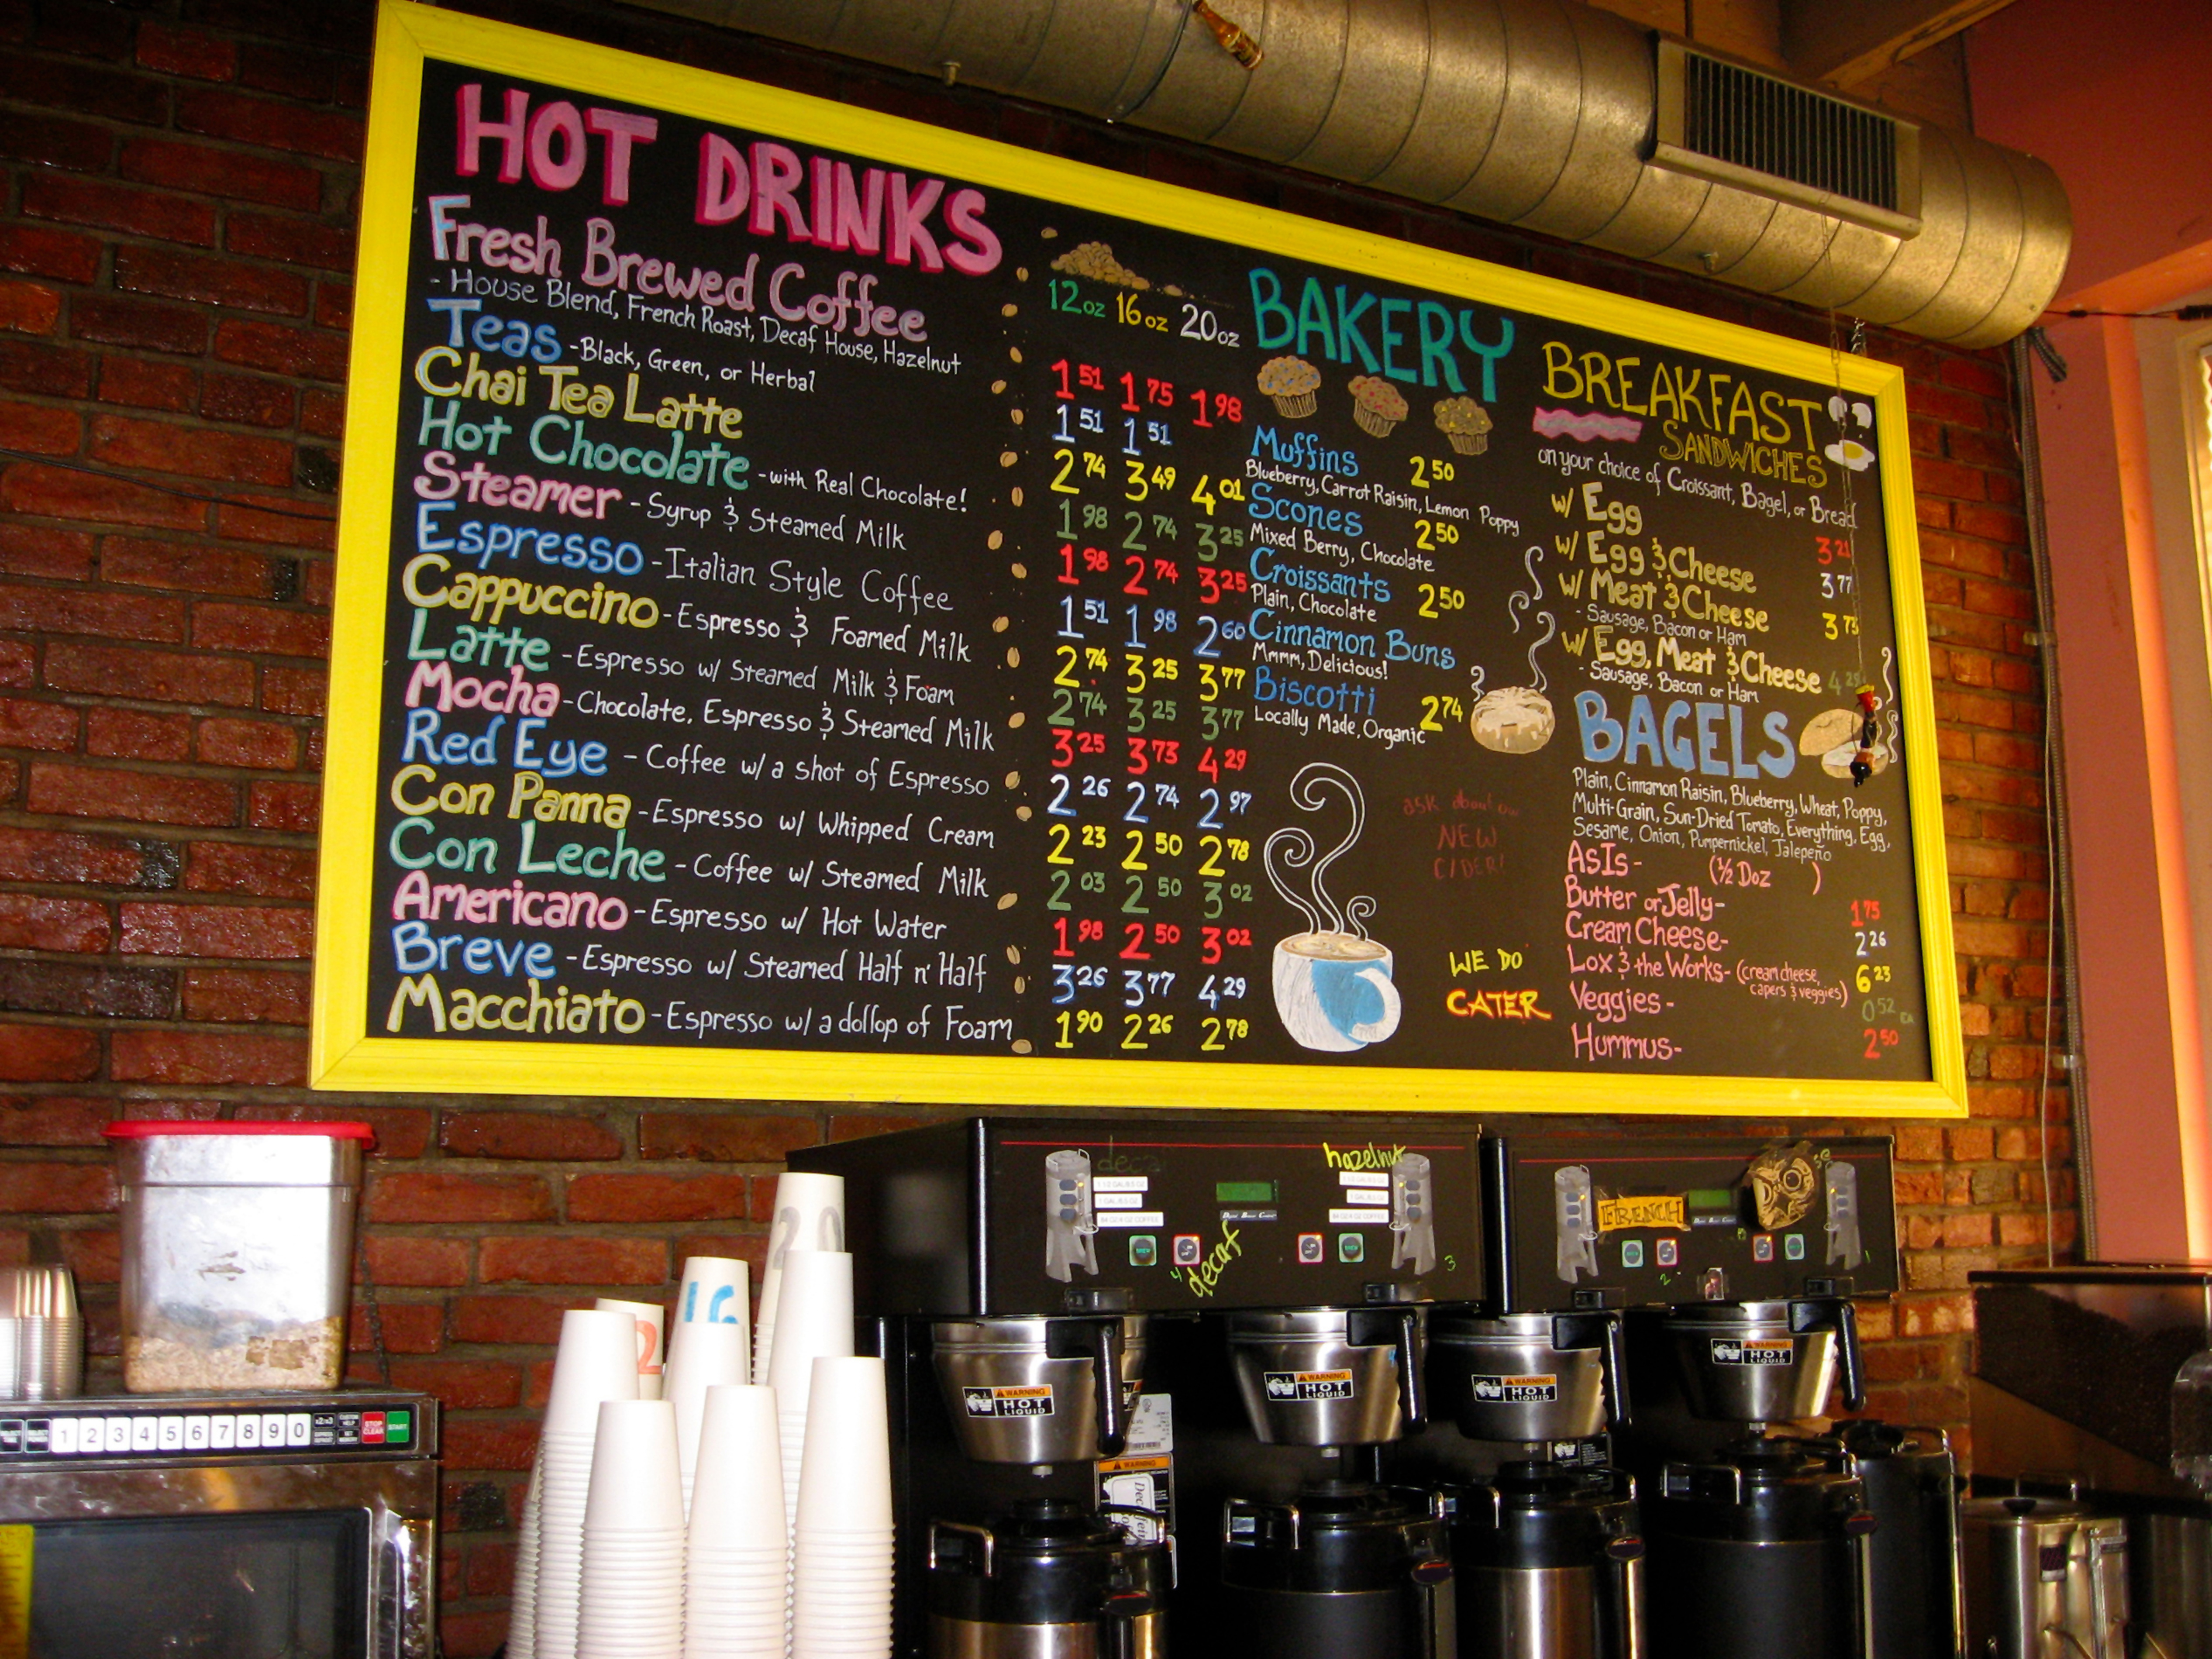 HOT DRINKS
12oz 16oz 20oz
Fresh Brewed Coffee 1 51 1 75 1 98
- House Blend, French Roast, Decaf House, Hazelnut
Teas - Black, Green, or Herbal 1 51 1 51
Chai Tea Latte 2 74 3 49 4 01
Hot Chocolate - with Real Chocolate! 1 98 2 74 3 25
Steamer - Syrup & Steamed Milk 1 98 2 74 3 25
Espresso - Italian Style Coffee 1 51 1 98 2 60
Cappuccino - Espresso & Foamed Milk 2 74 3 25 3 77
Latte - Espresso w/ Steamed Milk & Foam 2 74 3 25 3 77
Mocha - Chocolate, Espresso & Steamed Milk 3 25 3 73 4 29
Red Eye - Coffee w/ a shot of Espresso 2 26 2 74 2 97
Con Panna - Espresso w/ Whipped Cream 2 23 2 50 2 78
Con Leche - Coffee w/ Steamed Milk 2 03 2 50 3 02
Americano - Espresso w/ Hot Water 1 98 2 50 3 02
Breve - Espresso w/ Steamed Half n' Half 3 26 3 77 4 29
Macchiato - Espresso w/ a dollop of Foam 1 90 2 26 2 78
BAKERY
Muffins 2 50
Blueberry, Carrot Raisin, Lemon Poppy
Scones 2 50
Mixed Berry, Chocolate
Croissants 2 50
Plain, Chocolate
Cinnamon Buns
Mmmm, Delicious!
Biscotti 2 74
Locally Made, Organic
ask about our
NEW
CIDER!
WE DO
CATER
BREAKFAST
SANDWICHES
on your choice of Croissant, Bagel, or Bread
w/ Egg 3 21
w/ Egg & Cheese 3 77
w/ Meat & Cheese 3 73
- Sausage, Bacon or Ham
w/ Egg, Meat & Cheese
- Sausage, Bacon or Ham
BAGELS
Plain, Cinnamon Raisin, Blueberry, Wheat, Poppy,
Multi-Grain, Sun-Dried Tomato, Everything, Egg,
Sesame, Onion, Pumpernickel, Jalepeño
As Is - (1/2 Doz )
Butter or Jelly - 1 75
Cream Cheese - 2 26
Lox & the Works - (cream cheese, 6 23
capers & veggies)
Veggies - 0 52 EA
Hummus - 2 50
decaf
hazelnut
decaf
4
3
FRENCH
2
1
20
16
2
1 2 3 4 5 6 7 8 9 0
STOP
CLEAR
START
WARNING
HOT
LIQUID
WARNING
HOT
LIQUID
WARNING
HOT
LIQUID
WARNING
HOT
LIQUID
WARNING